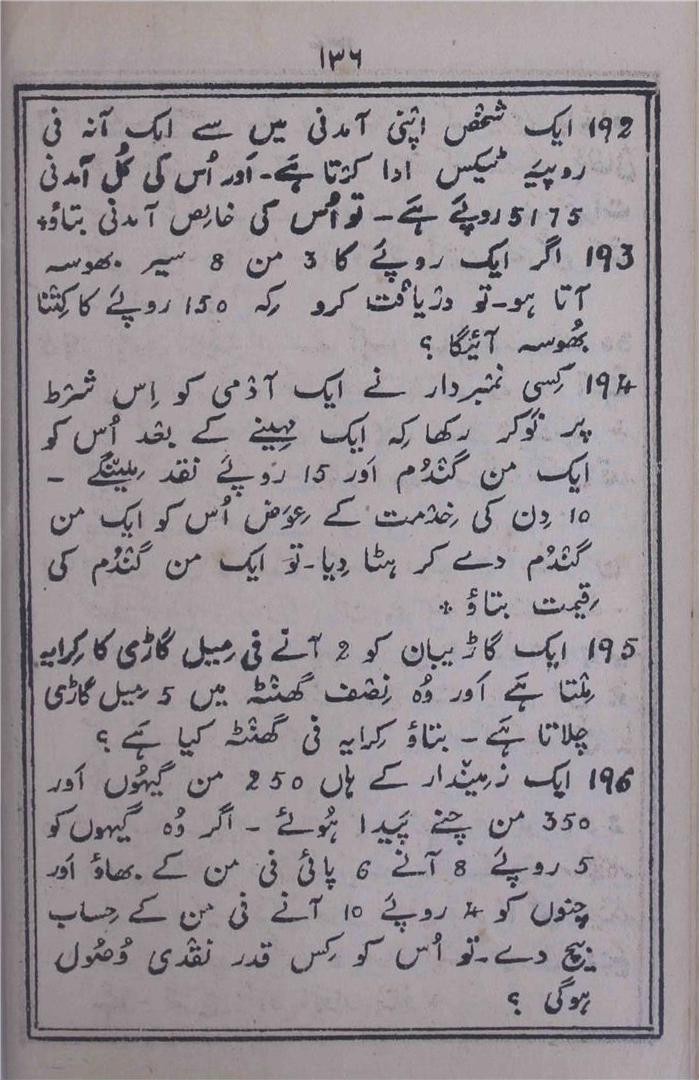 ۱۳۶
192 ایک شخص اپنی آمدنی میں سے ایک آنہ فی
روپیے ٹیکس ادا کرتا ہے۔ اَور اُس کی کُل آمدنی
5175 روپئے ہے۔ تو اُس کی خالِص آمدنی بتاؤ+
193 اگر ایک روپئے کا 3 من 8 سیر بھوسہ
آتا ہو۔ تو دریافت کرو کِہ 150 روپئے کا کِتنا
بھُوسہ آئیگا ؟
194 کِسی نمبردار نے ایک آدمی کو اِس شرط
پر نَوکر رکھا کِہ ایک مہینے کے بعد اُس کو
ایک من گندُم اَور 15 روپئے نقد مِلینگے ۔
10 دِن کی خِدمت کے عِوَض اُس کو ایک من
گندُم دے کر ہٹا دِیا۔ تو ایک من گندُم کی
قِیمت بتاؤ +
195 ایک گاڑیبان کو 2 آنے فی مِیل گاڑی کا کِرایہ
مِلتا ہے اَور وُہ نِصف گھنٹہ میں 5 مِیل گاڑی
چلاتا ہے۔ بتاؤ کِرایہ فی گھنٹہ کیا ہے ؟
196 ایک زمِیندار کے ہاں 250 من گیہُوں اَور
350 من چنے پَیدا ہُوئے ۔ اگر وُہ گیہوں کو
5 روپئے 8 آنے 6 پائی فی من کے بھاؤ اَور
چنوں کو 4 روپئے 10 آنے فی من کے حِساب
بیچ دے۔ تو اُس کو کِس قدر نقدی وُصُول
ہوگی ؟